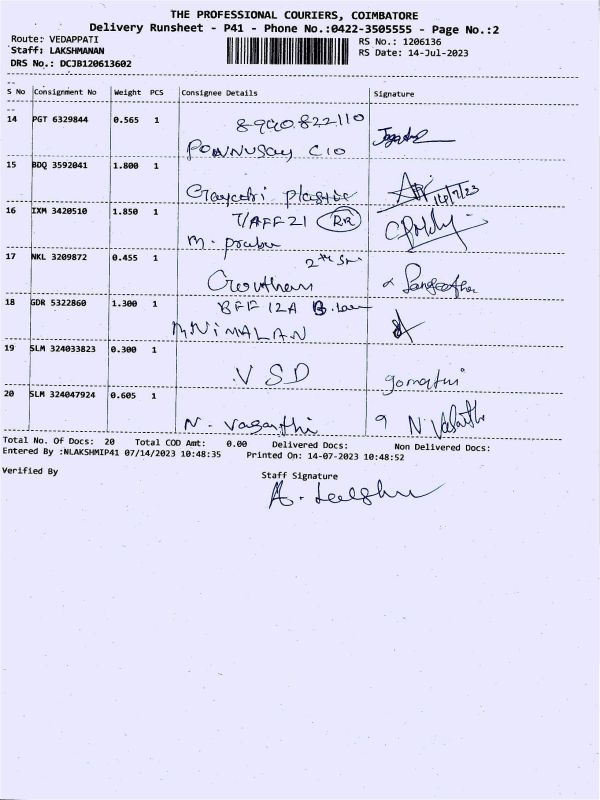 THE PROFESSIONAL COURIERS, COIMBATORE
Delivery Runsheet - P41 - Phone No.:0422-3505555 - Page No.:2
Route: VEDAPPATI
RS No.: 1206136
Staff: LAKSHMANAN
RS Date: 14-Jul-2023
DRS No.: DCJB120613602
S No Consignment No Weight PCS Consignee Details Signature
14 PGT 6329844 0.565 1 8940822110
PONNUSAY C10
15 BDQ 3592041 1.800 1
Gayathri plastic 14/7/23
16 IXM 3420510 1.850 1 7/AFF21 RR
m. prabu
17 NKL 3209872 0.455 1 2nd
Gowtham Sangeetha
18 GDR 5322860 1.300 1 BFF 12A
NIMALAN
19 SLM 324033823 0.300 1
VSD gomathi
20 SLM 324047924 0.605 1
N. vasanthi N. Vasanthi
Total No. Of Docs: 20 Total COD Amt: 0.00 Delivered Docs: Non Delivered Docs:
Entered By :NLAKSHMIP41 07/14/2023 10:48:35 Printed On: 14-07-2023 10:48:52
Verified By Staff Signature